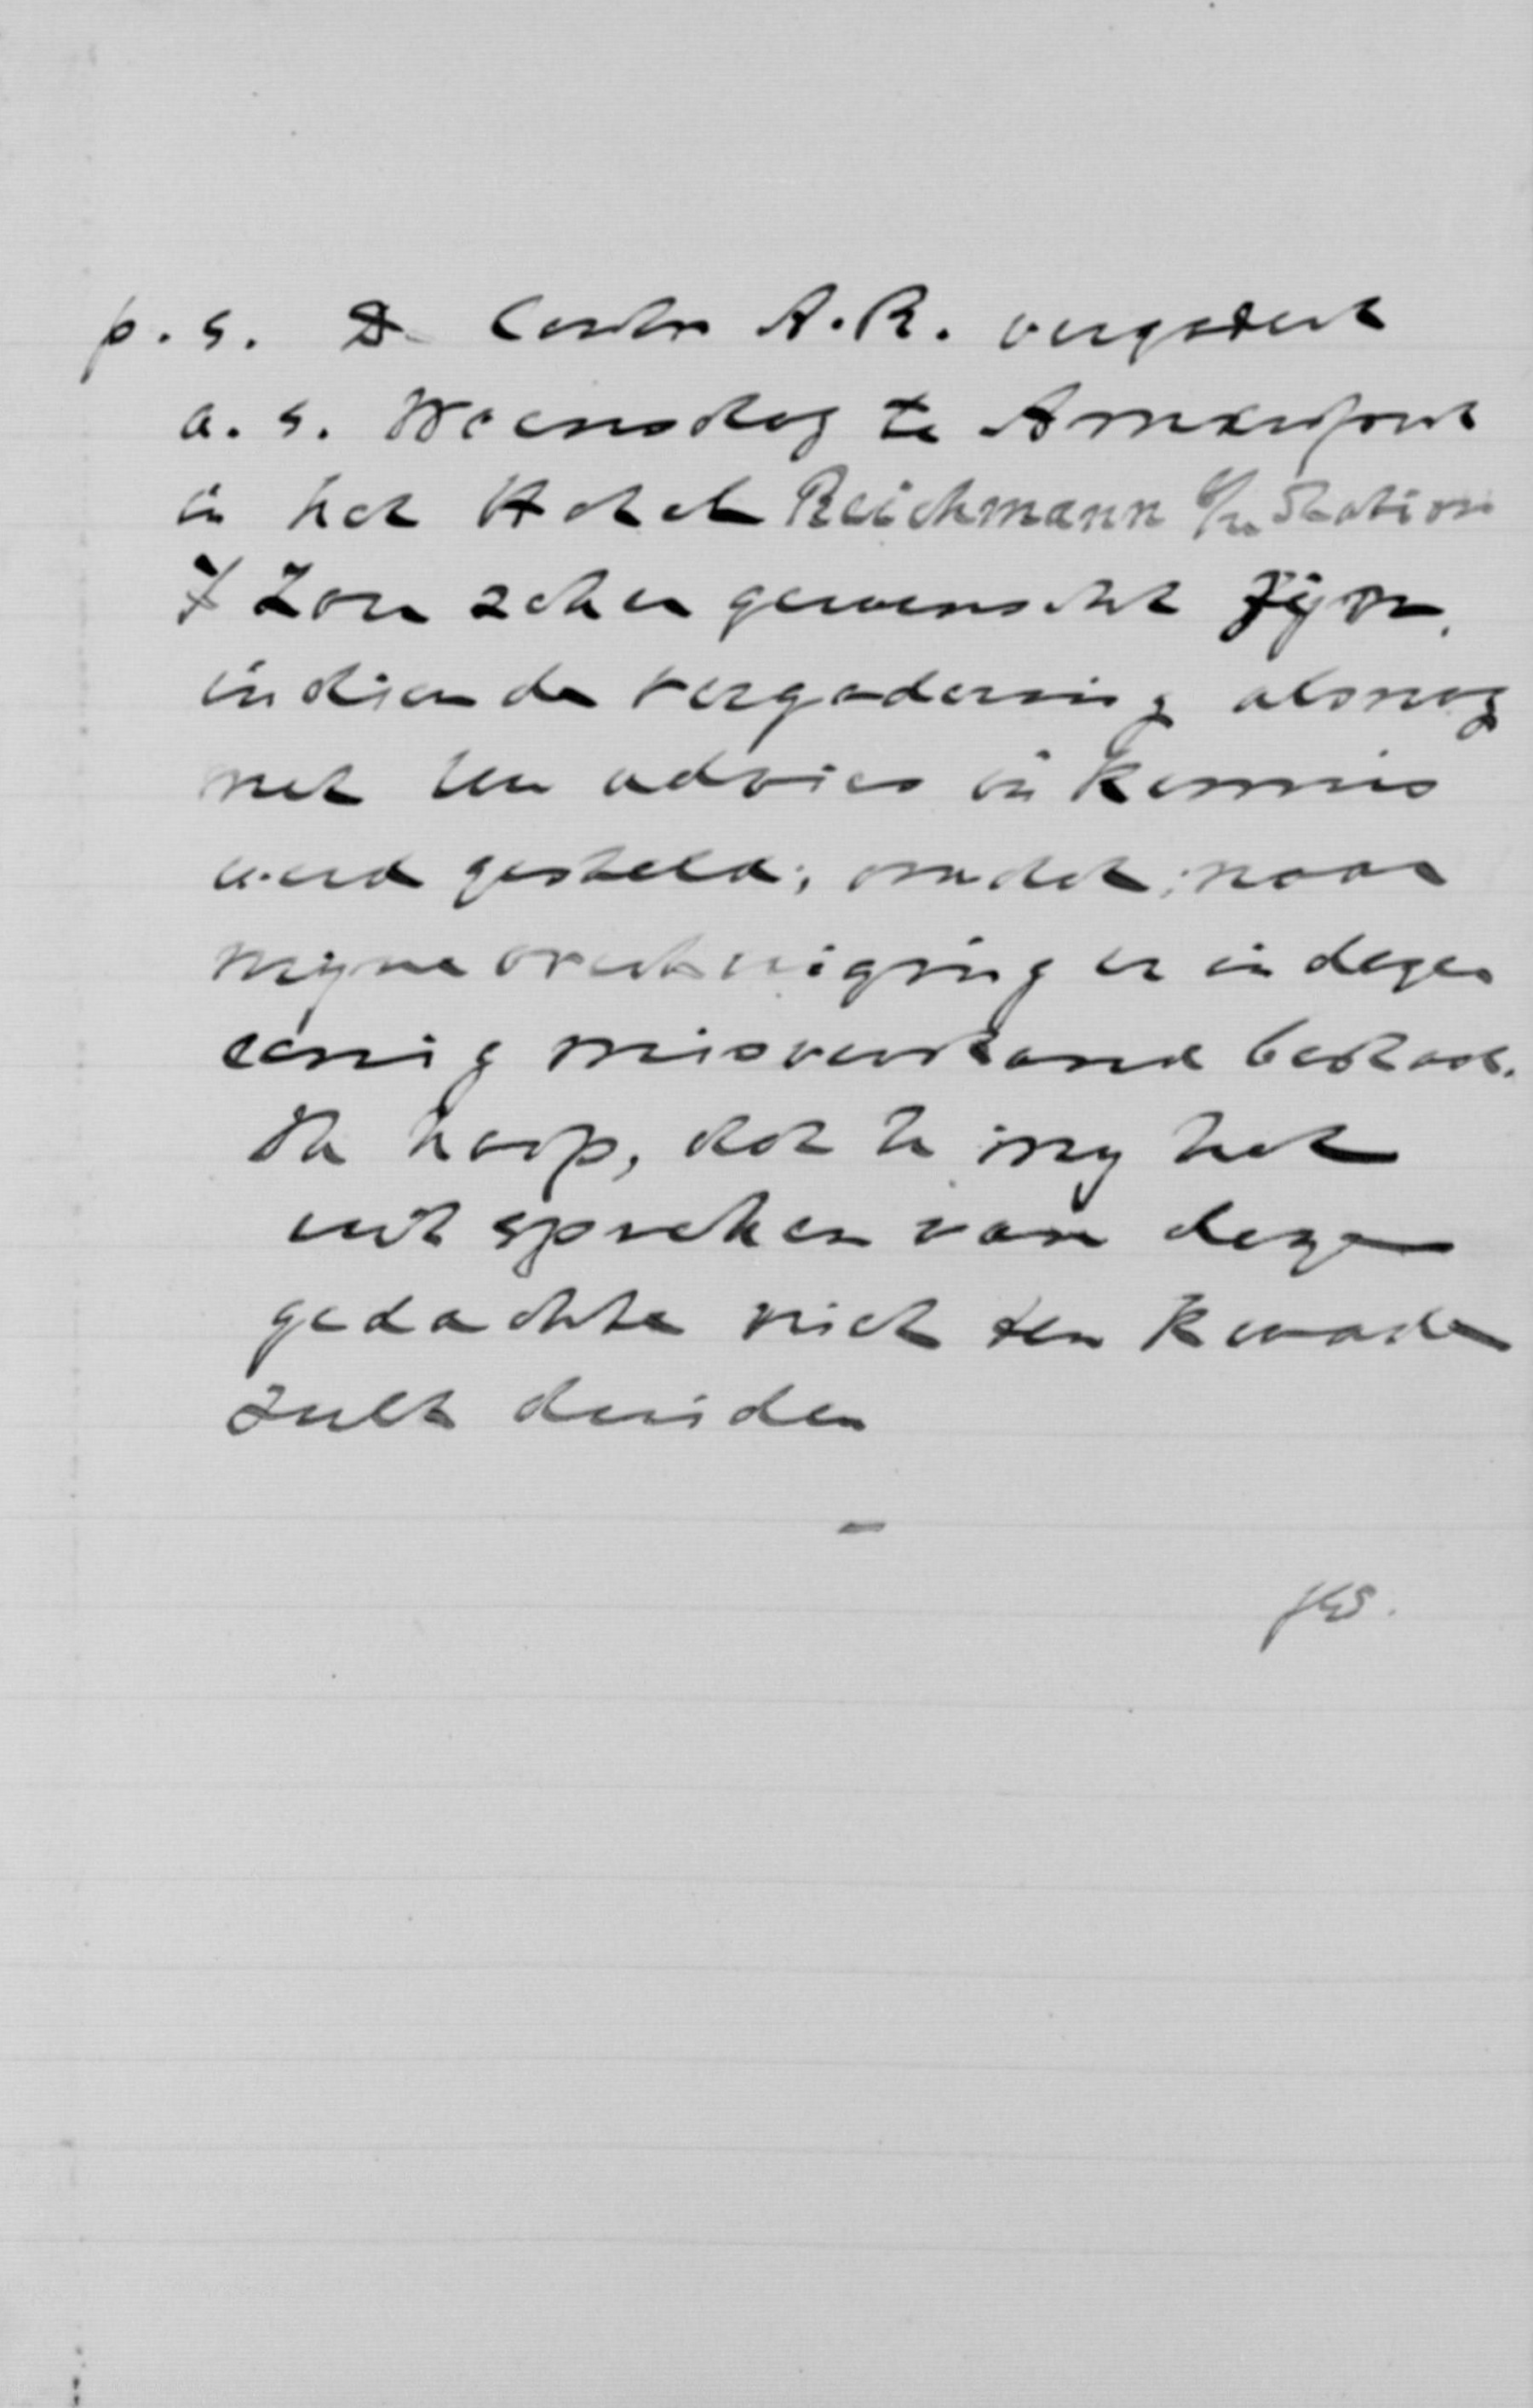 p.s. De Centr. A.R. vergadert
a.s. Woensdag te Amersfoort
in het Hotel Reichmann b/h Station
't Zou zeker gewenscht zijn,
indien de vergadering alsnog
met Uw advies in kennis
werd gesteld; omdat naar
mijne overtuiging er in dezen
eenig misverstand bestaat.
Ik hoop, dat U mij het
uitspreken van deze
gedachte niet ten kwade
zult duiden
—